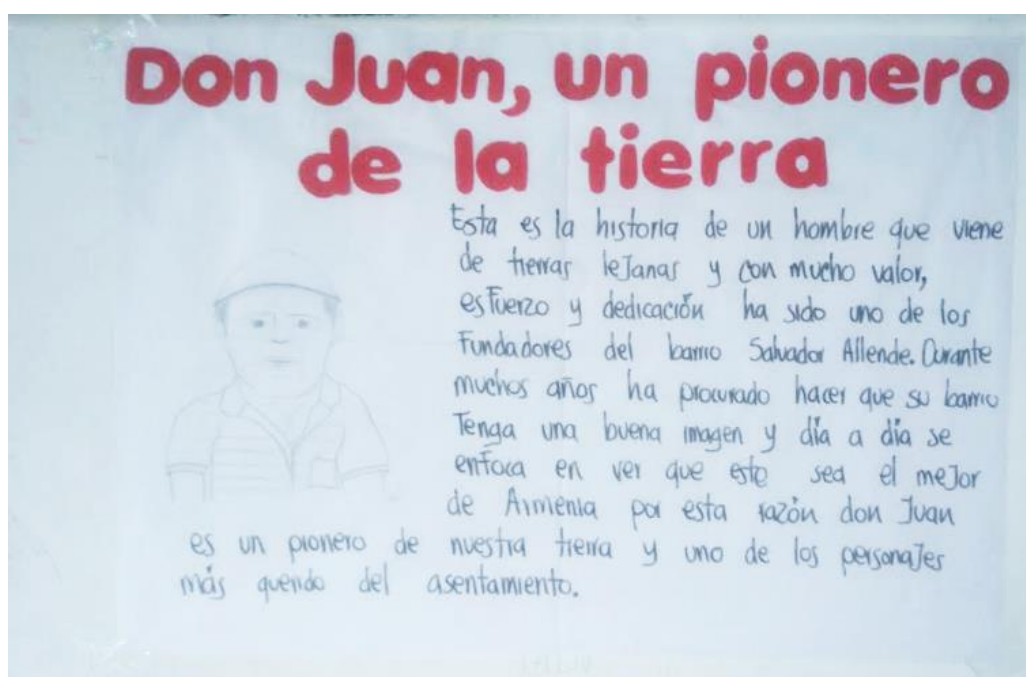 Don Juan, un pionero
de la tierra
Esta es la historia de un hombre que viene
de tierras leJanas y con mucho valor,
esfuerzo y dedicación ha sido uno de los
Fundadores del barrio Salvador Allende. Durante
muchos años ha procurado hacer que su barrio
Tenga una buena imagen y día a día se
enfoca en ver que este sea el meJor
de Armenia por esta razón don Juan
es un pionero de nuestra tierra y uno de los personaJes
más querido del asentamiento.